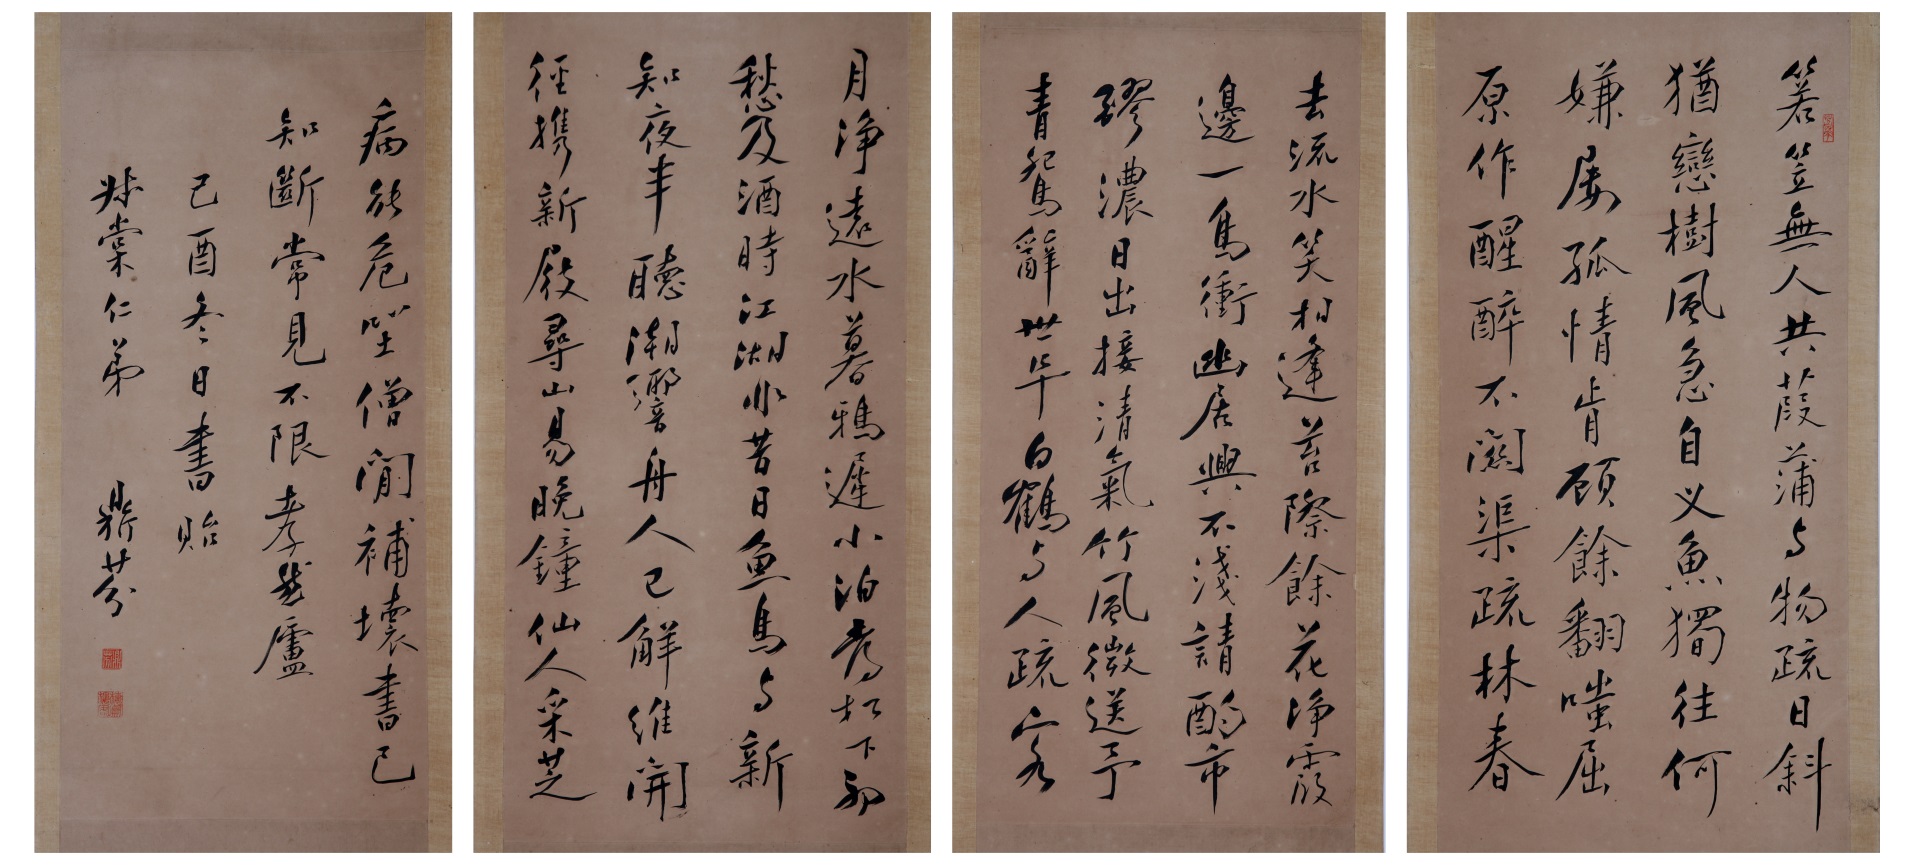 箬笠無人共葭蒲与物疏日斜
猶戀樹風急自义魚獨往何
嫌屡孤情肯顧餘翻嗤屈
原作醒醉不關渠疏林春
去流水笑相逢苔際餘花净霞
邊一鳥衝幽居興不淺請酌市
醪濃日出接清氣竹風微送予
青鴛辭世早白鶴与人疏家
月净遠水暮鴉遲小泊為松下初
愁及酒時江湖非昔日魚鳥与新
知夜半聽潮響舟人已解維開
徑携新屐尋山易晚鐘仙人采芝
病能危坐僧閒補壞書已
知斷常見不限孝然廬
己酉冬日書貽
棠仁弟
鼎芬